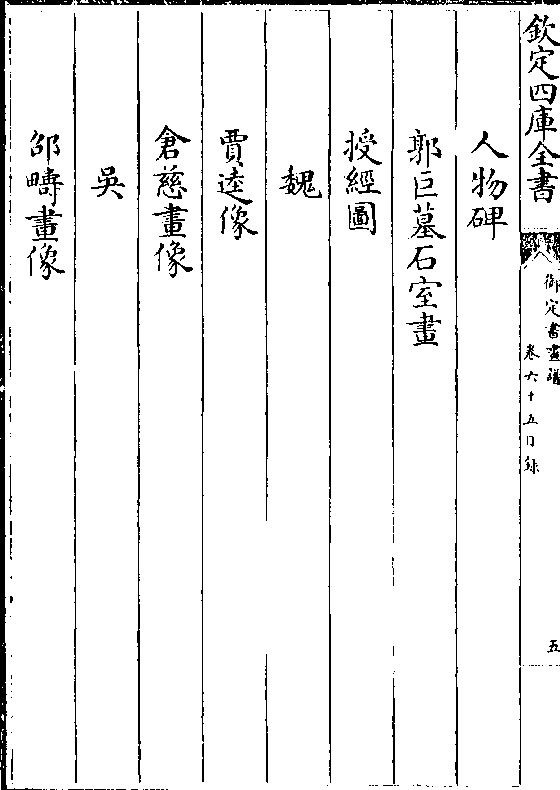 欽定四庫全書
御定書畫譜
卷六十五目録
五
人物碑
郭巨墓石室畫
授經圖
魏
賈逵像
倉慈畫像
吳
邵疇畫像